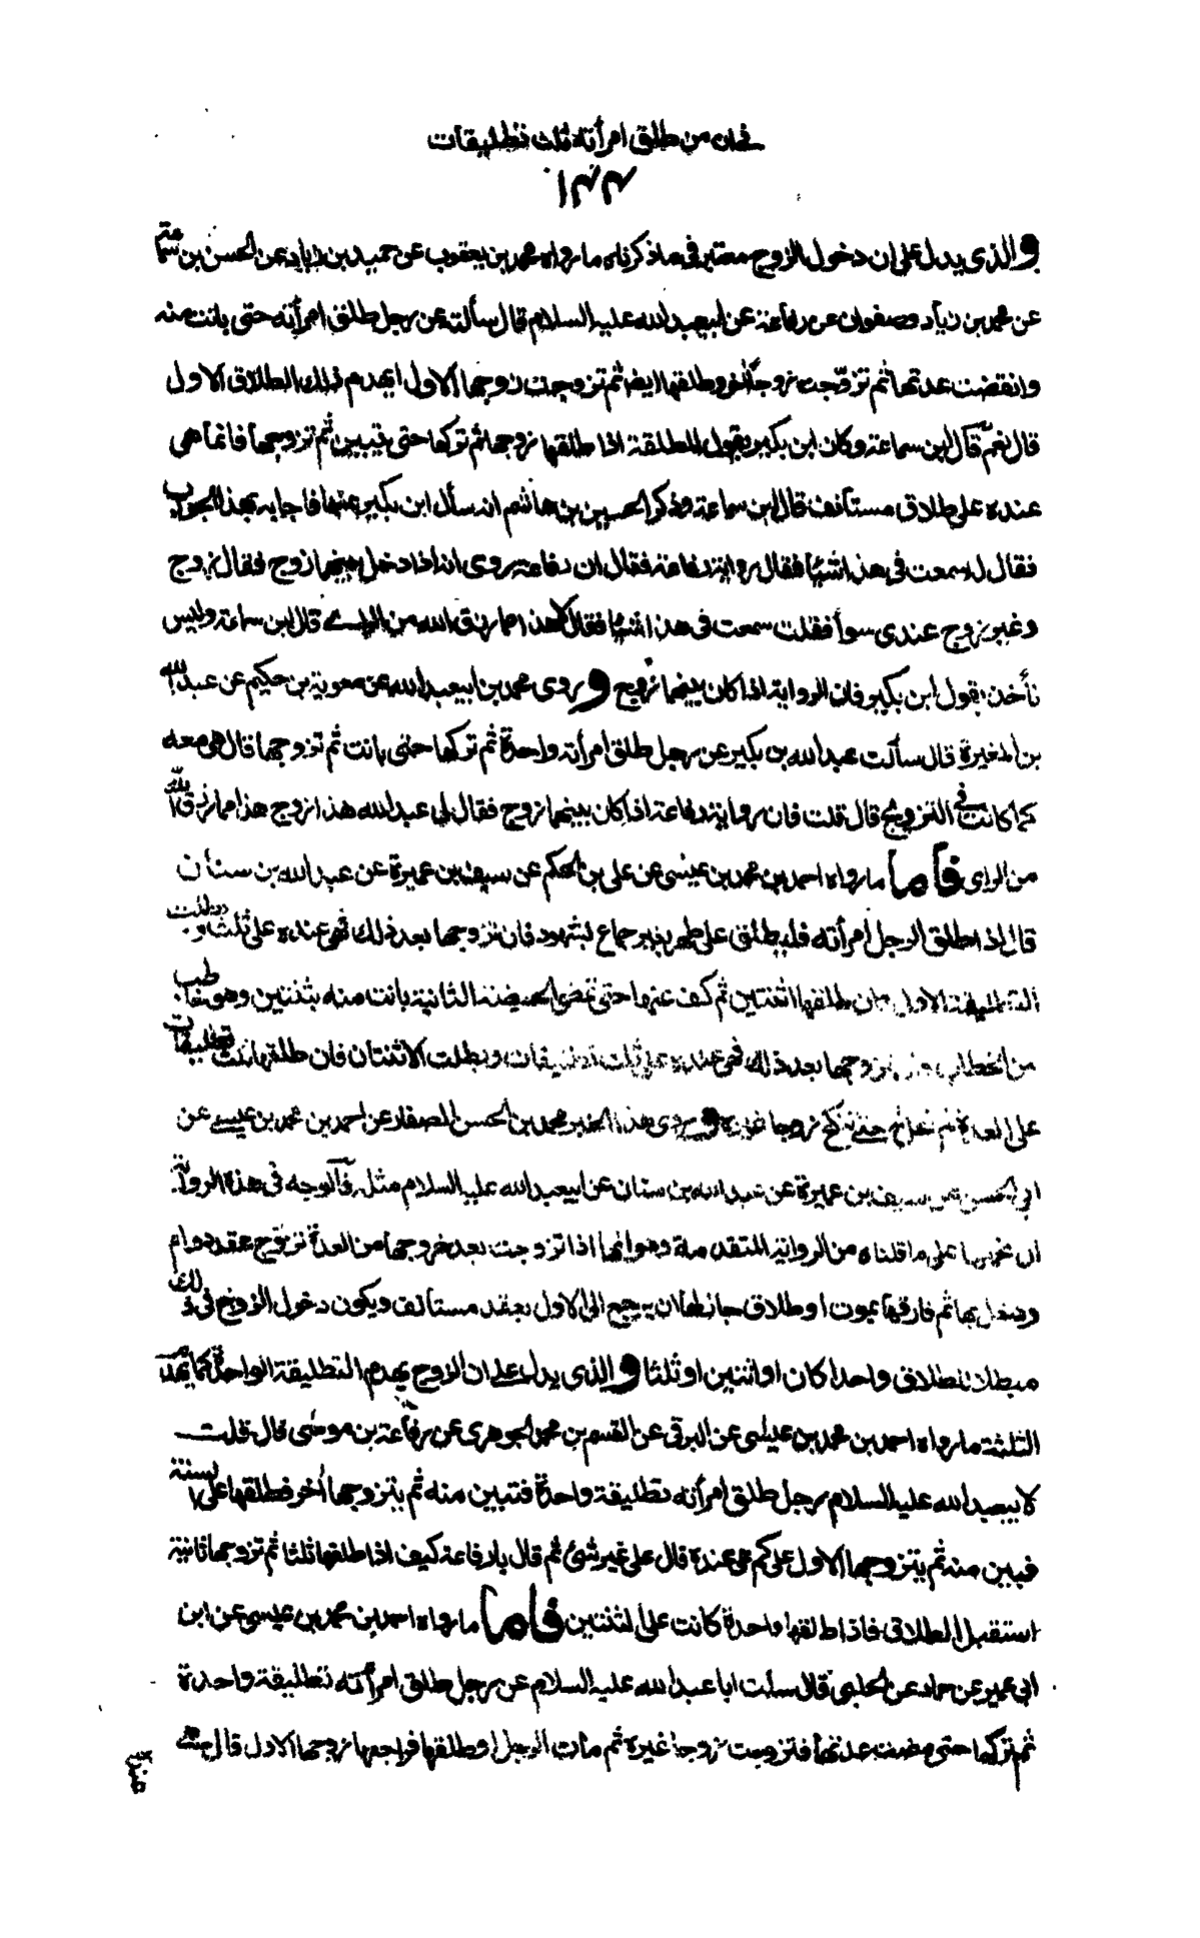 في ان من طلق امرأته ثلث تطليقات
والذي يدل على ان دخول الزوج معتبر في ما ذكرناه ما رواه محمد بن يعقوب عن حميد بن زياد عن الحسن بن سماعة
عن محمد بن زياد وصفوان عن رفاعة عن ابيعبد الله عليه السلام قال سألته عن رجل طلق امرأته حتى بانت منه
وانقضت عدتها ثم تزوّجت زوجاً آخر وطلقها ايضا ثم تزوجت زوجها الاول ايهدم ذلك الطلاق الاول
قال نعم قال ابن سماعة وكان ابن بكير يقول المطلقة اذا طلقها زوجها ثم تركها حتى تبين ثم تزوجها فانما هي
عنده على طلاق مستأنف قال ابن سماعة وذكر الحسين بن هاشم انه سأل ابن بكير عنها فاجابه بهذا الجواب
فقال له سمعت في هذا شيئا فقال رواية رفاعة فقال ان رفاعة روى انه اذا دخل بينهما زوج فقال زوج
وغير زوج عندي سوأ فقلت سمعت في هذا شيئا فقال لا هذا مما رزق الله من الراي قال ابن سماعة وليس
نأخذ بقول ابن بكير فان الرواية اذا كان بينهما زوج وروى محمد بن ابيعبد الله عن معوية بن حكيم عن عبد الله
بن المغيرة قال سألت عبد الله بن بكير عن رجل طلق امرأته واحدة ثم تركها حتى بانت ثم تزوجها قال هي معه
كما كانت في التزويج قال قلت فان رواية رفاعة اذا كان بينهما زوج فقال لي عبد الله هذا زوج هذا مما رزق الله
من الراي فأما ما رواه احمد بن محمد بن عيسى عن علي بن الحكم عن سيف بن عميرة عن عبد الله بن سنان
قال اذا طلق الرجل امرأته فليطلق على طهر بغير جماع بشهود فان تزوجها بعد ذلك فهي عنده على ثلث وبطلت
التطليقة الاولى وان طلقها اثنتين ثم كف عنها حتى تمضي الحيضة الثانية بانت منه بثنتين وهو خاطب
من الخطاب فان تزوجها بعد ذلك فهي عنده على ثلث تطليقات وبطلت الاثنتان فان طلقها ثلث تطليقات
على العدة لم تحل له حتى تنكح زوجا غيره وروى هذا الخبر محمد بن الحسن الصفار عن احمد بن محمد بن عيسى عن
ابي الحسن عن سيف بن عميرة عن عبد الله بن سنان عن ابيعبد الله عليه السلام مثله فالوجه في هذه الرواية
ان نحملها على ما قلناه من الرواية المتقدمة وهو انها اذا تزوجت بعد خروجها من العدة تزوج عقد دوام
ودخل بها ثم فارقها بموت او طلاق جاز لها ان يرجع الى الاول بعقد مستأنف ويكون دخول الزوج في ذلك
مبطلا للطلاق واحدا كان او اثنين او ثلثا والذي يدل على ان الزوج يهدم التطليقة الواحدة كما يهدم
الثلثة ما رواه احمد بن محمد بن عيسى عن البرقي عن القسم بن محمد الجوهري عن رفاعة بن موسى قال قلت
لابيعبد الله عليه السلام رجل طلق امرأته تطليقة واحدة فتبين منه ثم يتزوجها آخر فطلقها على السنة
فبين منه ثم يتزوجها الاول على كم هي عنده قال على غير شئ ثم قال يا رفاعة كيف اذا طلقها ثلثا ثم تزوجها ثانية
استقبل الطلاق فاذا طلقها واحدة كانت على اثنتين فأما ما رواه احمد بن محمد بن عيسى عن ابن
ابي عمير عن حماد عن الحلبي قال سألت ابا عبد الله عليه السلام عن رجل طلق امرأته تطليقة واحدة
ثم تركها حتى مضت عدتها فتزوجت زوجا غيره ثم مات الرجل او طلقها فراجعها زوجها الاول قال هي